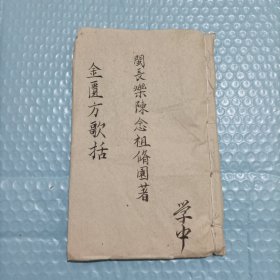 閩長樂陳念祖脩園著
金匱方歌括
学中